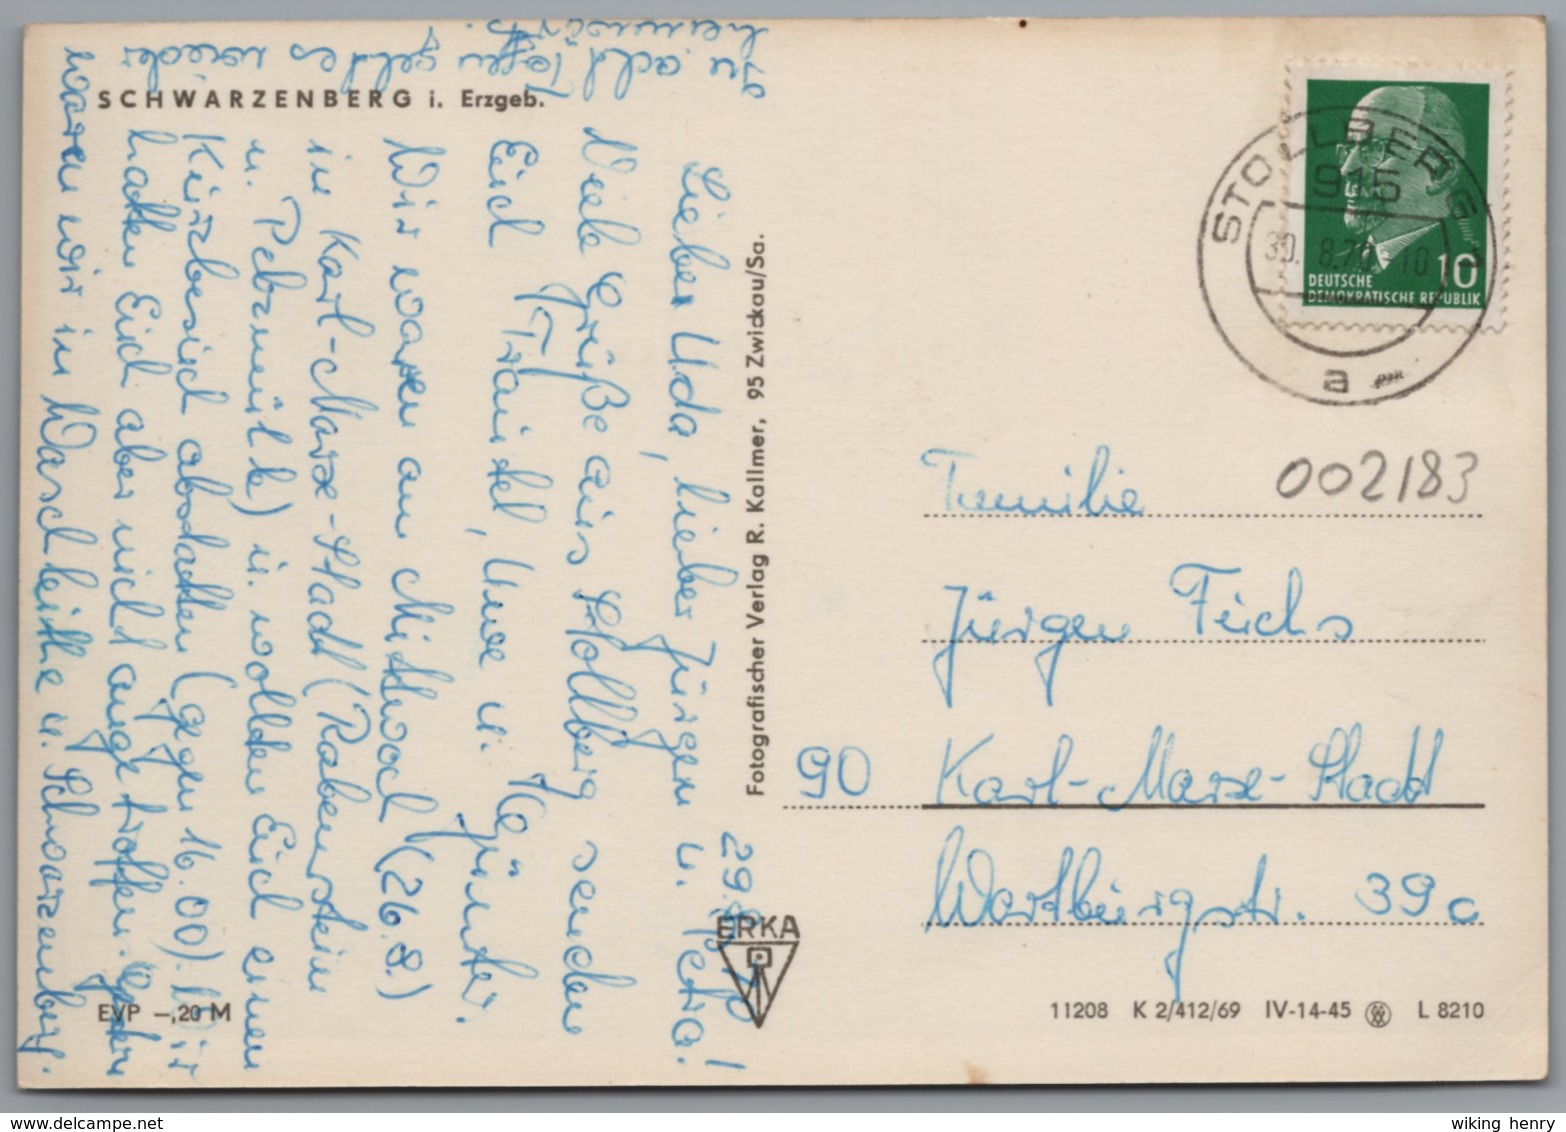 SCHWARZENBERG i. Erzgeb.
29.8.70
Liebe Uda, lieber Jürgen u. Petra!
Viele Grüße aus Stollberg senden
Euch Traudel, Uwe u. Günter.
Wir waren am Mittwoch (26.8.)
in Karl-Marx-Stadt (Rabenstein
u. Pelzmühle) u. wollten Euch einen
Kurzbesuch abstatten (gegen 16.00). Wir
hatten Euch aber nicht angetroffen. Gestern
waren wir in Waschleithe u. Schwarzenberg.
In acht Tagen geht es wieder
heimwärts.
EVP –,20 M
Fotografischer Verlag R. Kallmer, 95 Zwickau/Sa.
ERKA
STOLLBERG
915
30. 8.70 - 10
a
10
DEUTSCHE
DEMOKRATISCHE REPUBLIK
002183
Familie
Jürgen Fuchs
90 Karl-Marx-Stadt
Wartburgstr. 39c
11208 K 2/412/69 IV-14-45 L 8210
wiking henry